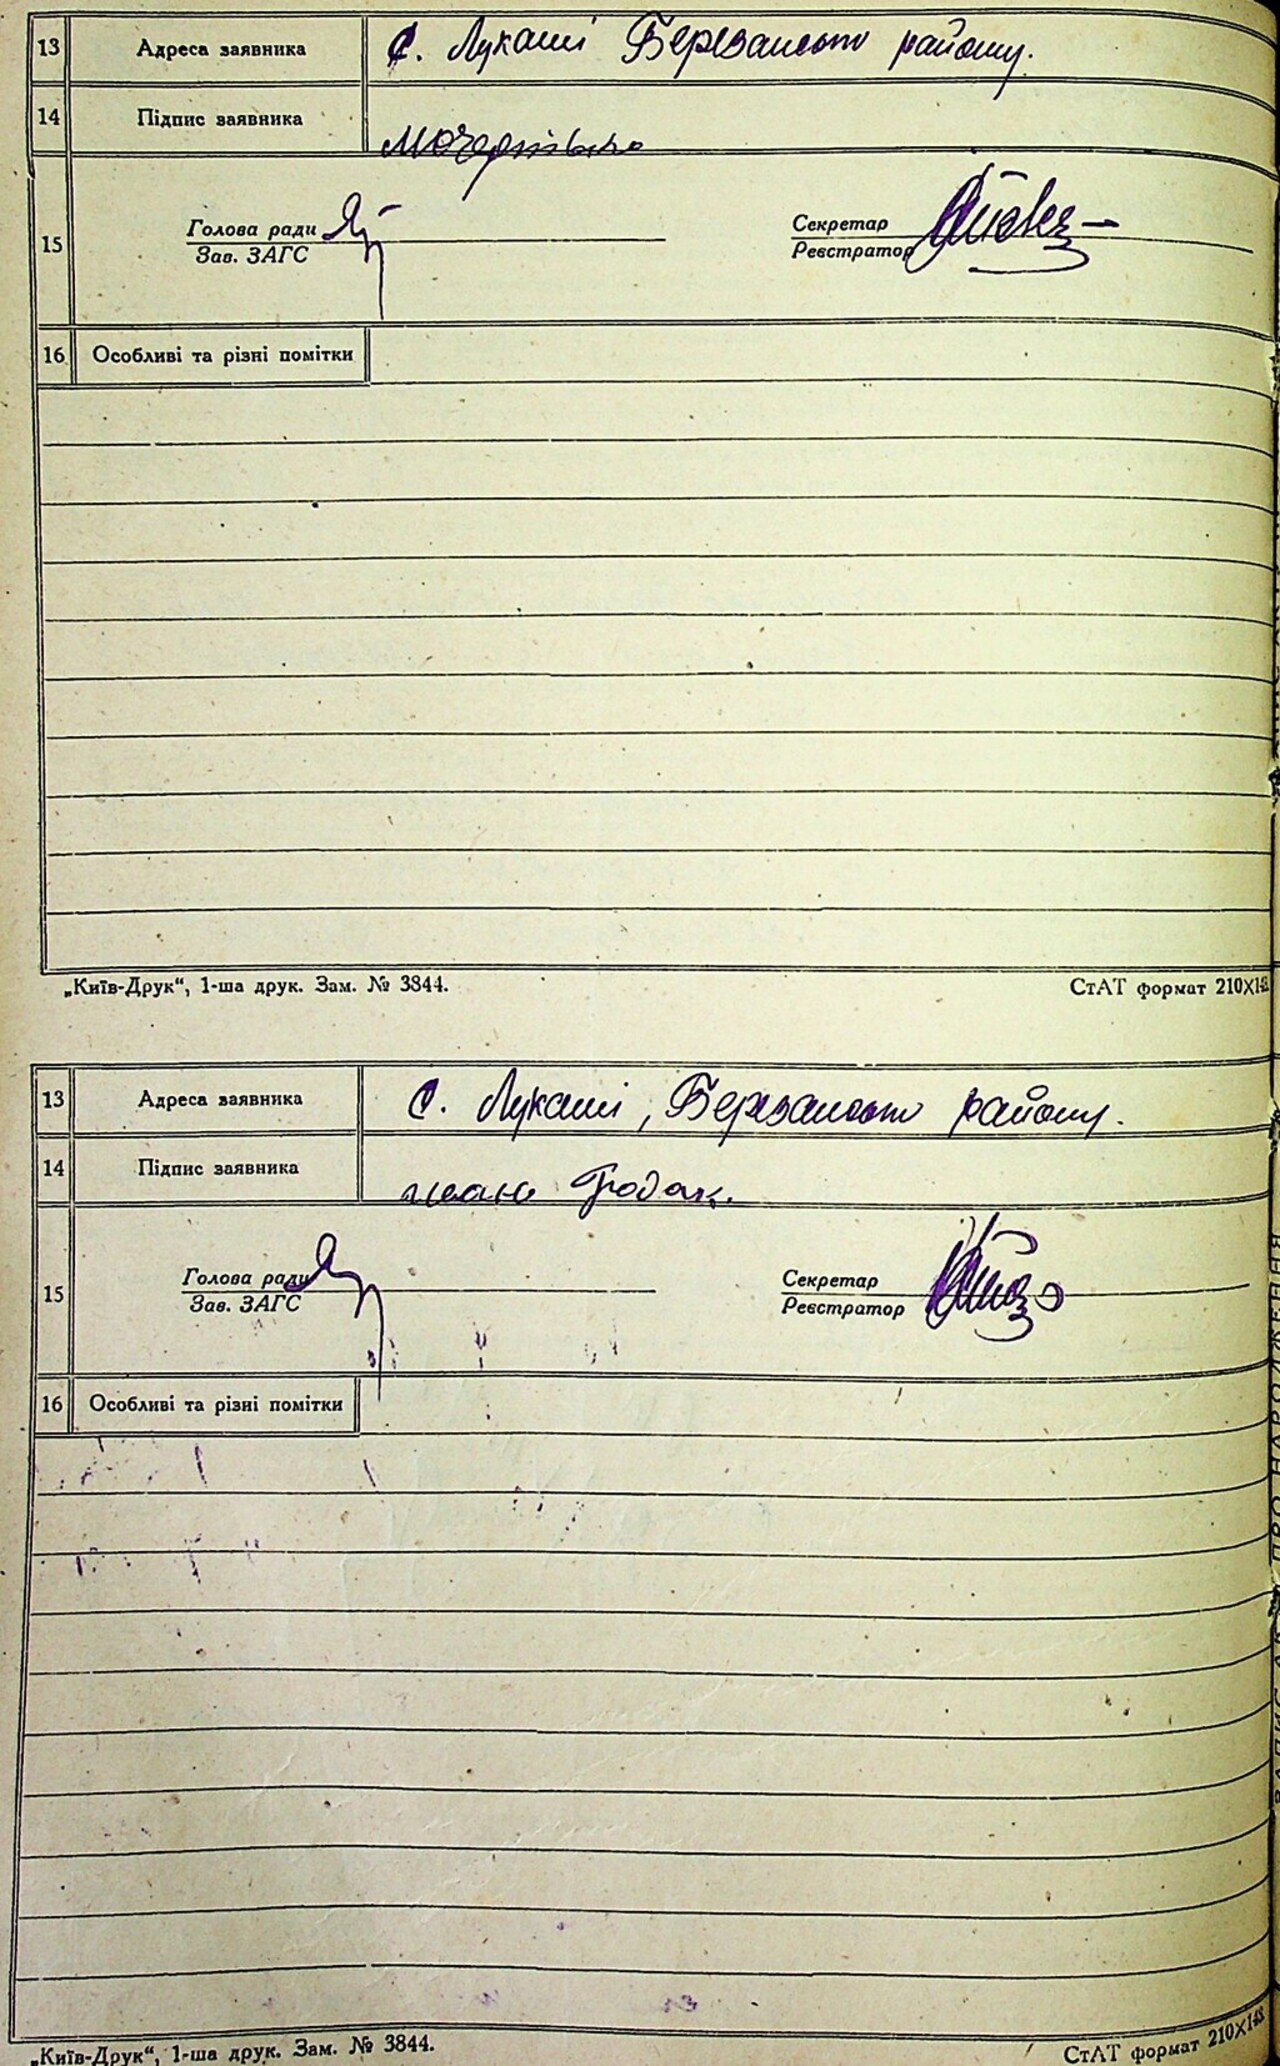 13 Адреса заявника С. Лукаші Березансько району.
14 Підпис заявника
15 Голова ради Секретар
Зав. ЗАГС Реєстратор
16 Особливі та різні помітки
„Київ-Друк“, 1-ша друк. Зам. № 3844. СтАТ формат 210X148
13 Адреса заявника С. Лукаші, Березансько району.
14 Підпис заявника Гродак.
15 Голова ради Секретар
Зав. ЗАГС Реєстратор
16 Особливі та різні помітки
„Київ-Друк“, 1-ша друк. Зам. № 3844. СтАТ формат 210X148
ПРО НАРОДЖЕННЯ